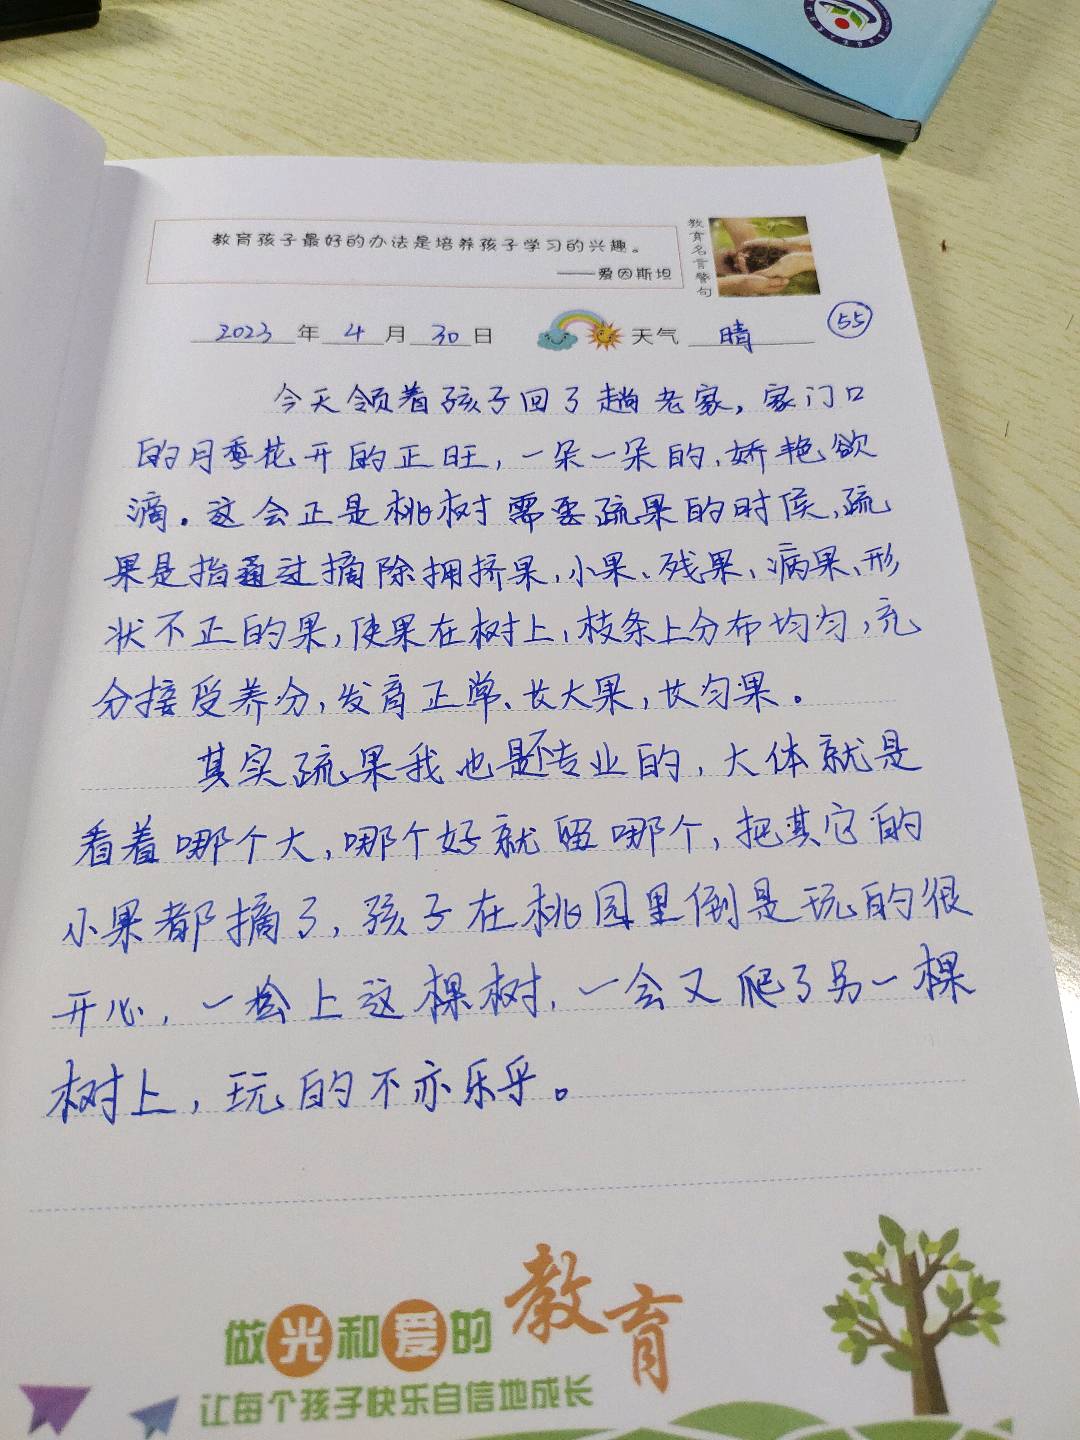 教育孩子最好的办法是培养孩子学习的兴趣。
——爱因斯坦
教育名言警句
2023 年 4 月 30 日 天气 晴 55
今天领着孩子回了趟老家，家门口
的月季花开的正旺，一朵一朵的，娇艳欲
滴。这会正是桃树需要疏果的时侯，疏
果是指通过摘除拥挤果、小果、残果、病果、形
状不正的果，使果在树上，枝条上分布均匀，充
分接受养分，发育正常、长大果，长匀果。
其实疏果我也是不专业的，大体就是
看着哪个大，哪个好就留哪个，把其它的
小果都摘了，孩子在桃园里倒是玩的很
开心，一会上这棵树，一会又爬了另一棵
树上，玩的不亦乐乎。
做光和爱的教育
让每个孩子快乐自信地成长